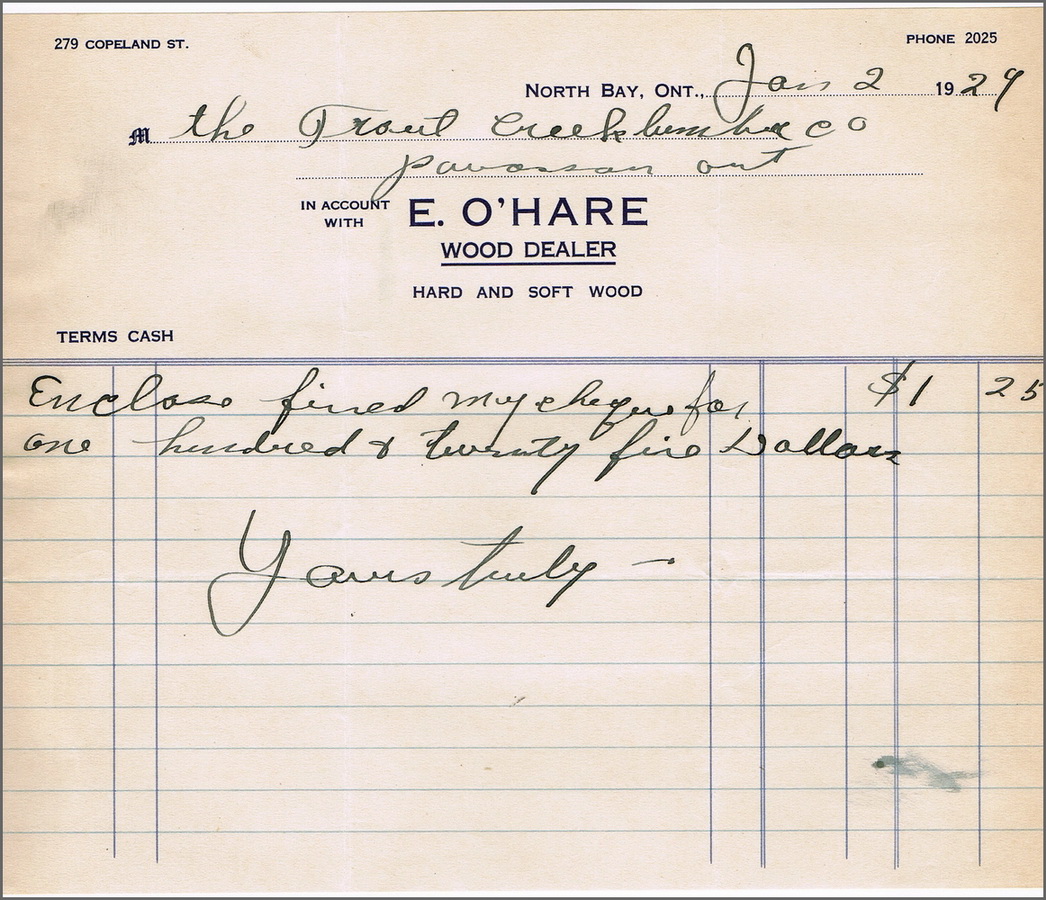 279 COPELAND ST.
PHONE 2025
NORTH BAY, ONT., Jan 2 1929
M the Trout Creek lumber co
powassan ont
IN ACCOUNT WITH
E. O'HARE
WOOD DEALER
HARD AND SOFT WOOD
TERMS CASH
Enclose fined my cheque for $1 25
one hundred & twenty five Dollars
Yours truly —